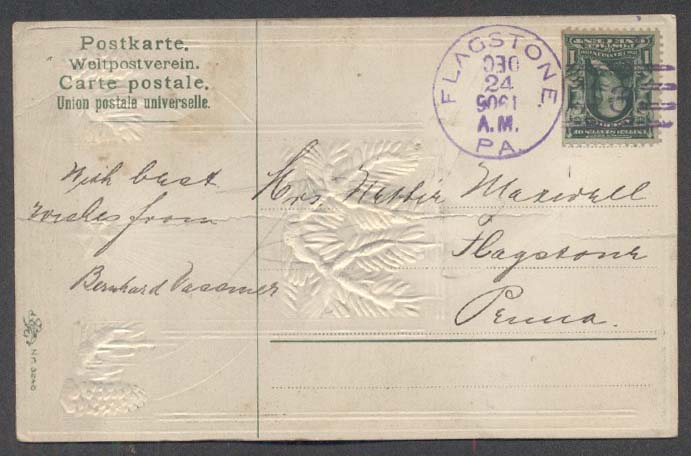 Postkarte.
Weltpostverein.
Carte postale.
Union postale universelle.
FLAGSTONE.
DEC
24
1906
A.M.
PA.
With best
wishes from
Bernhard
Mrs. Nettie Maxwell
Flagstone
Penna.